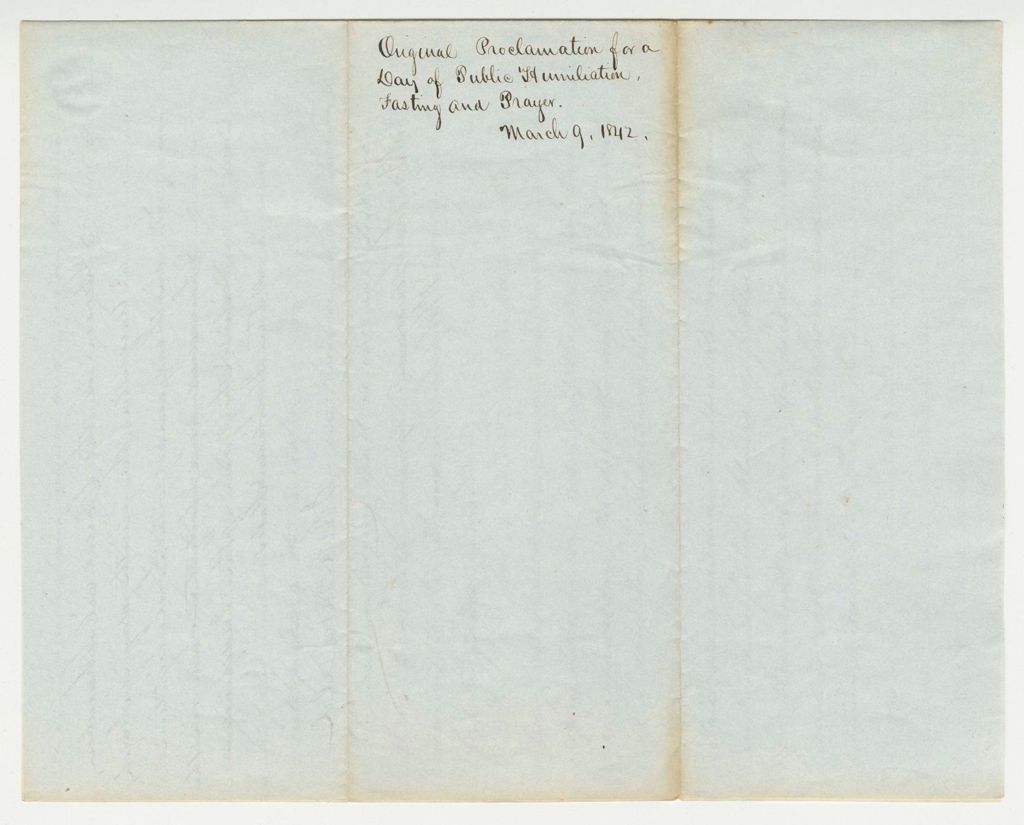 Original Proclamation for a
Day of Public Humiliation,
Fasting and Prayer.
March 9, 1842.